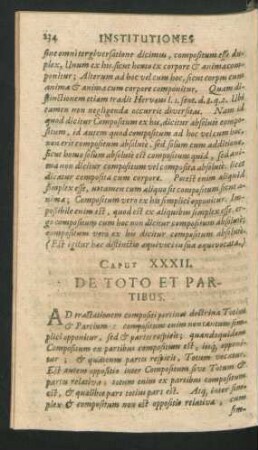 234 INSTITUTIONES
sine omni tergiversatione dicimus, compositum esse du-
plex, Unum ex his, sicut homo ex corpore & anima com-
ponitur; Alterum ad hoc vel cum hoc, sicut corpus cum
anima & anima cum corpore componitur. Quam di-
stinctionem etiam tradit Hervæus l. 1. sent. d. 8. q. 2. Ubi
tamen non negligenda occurrit diversitas. Nam id
quod dicitur Compositum ex his, dicitur absolute compo-
situm, id autem quod compositum ad hoc vel cum hoc,
non erit compositum absolute, sed solum cum additione.
Sicut homo solum absolute est compositum quid, sed ani-
ma non dicitur composita vel composita absolute. licet
dicatur composita cum corpore. Potest enim aliquid
simplex esse, ut tamen cum aliquo sit compositum sicut a-
nima; Compositum vero ex his simplici opponitur. Im-
possibile enim est, quod est ex aliquibus simplex esse. er-
go compositum cum hoc non dicitur compositum absolute:
compositum vero ex his dicitur compositum absolute.
(Est igitur hæc distinctio æquivoci in sua æquivocata.)
CAPUT XXXII.
DE TOTO ET PAR-
TIBUS.
AD tractationem compositi pertinet doctrina Totius
& Partium: compositum enim non tantum sim-
plici opponitur, sed & partes respicit; quandoquidem
Compositum ex partibus compositum est, itaq; opponi-
tur; & quatenus partes respicit, Totum vocatur.
Est autem oppositio inter Compositum sive Totum &
partes relativa; totum enim ex partibus compositum
est, & quælibet pars totius pars est. Atq; inter sim-
plex & compositum non est oppositio relativa; cum
sim-